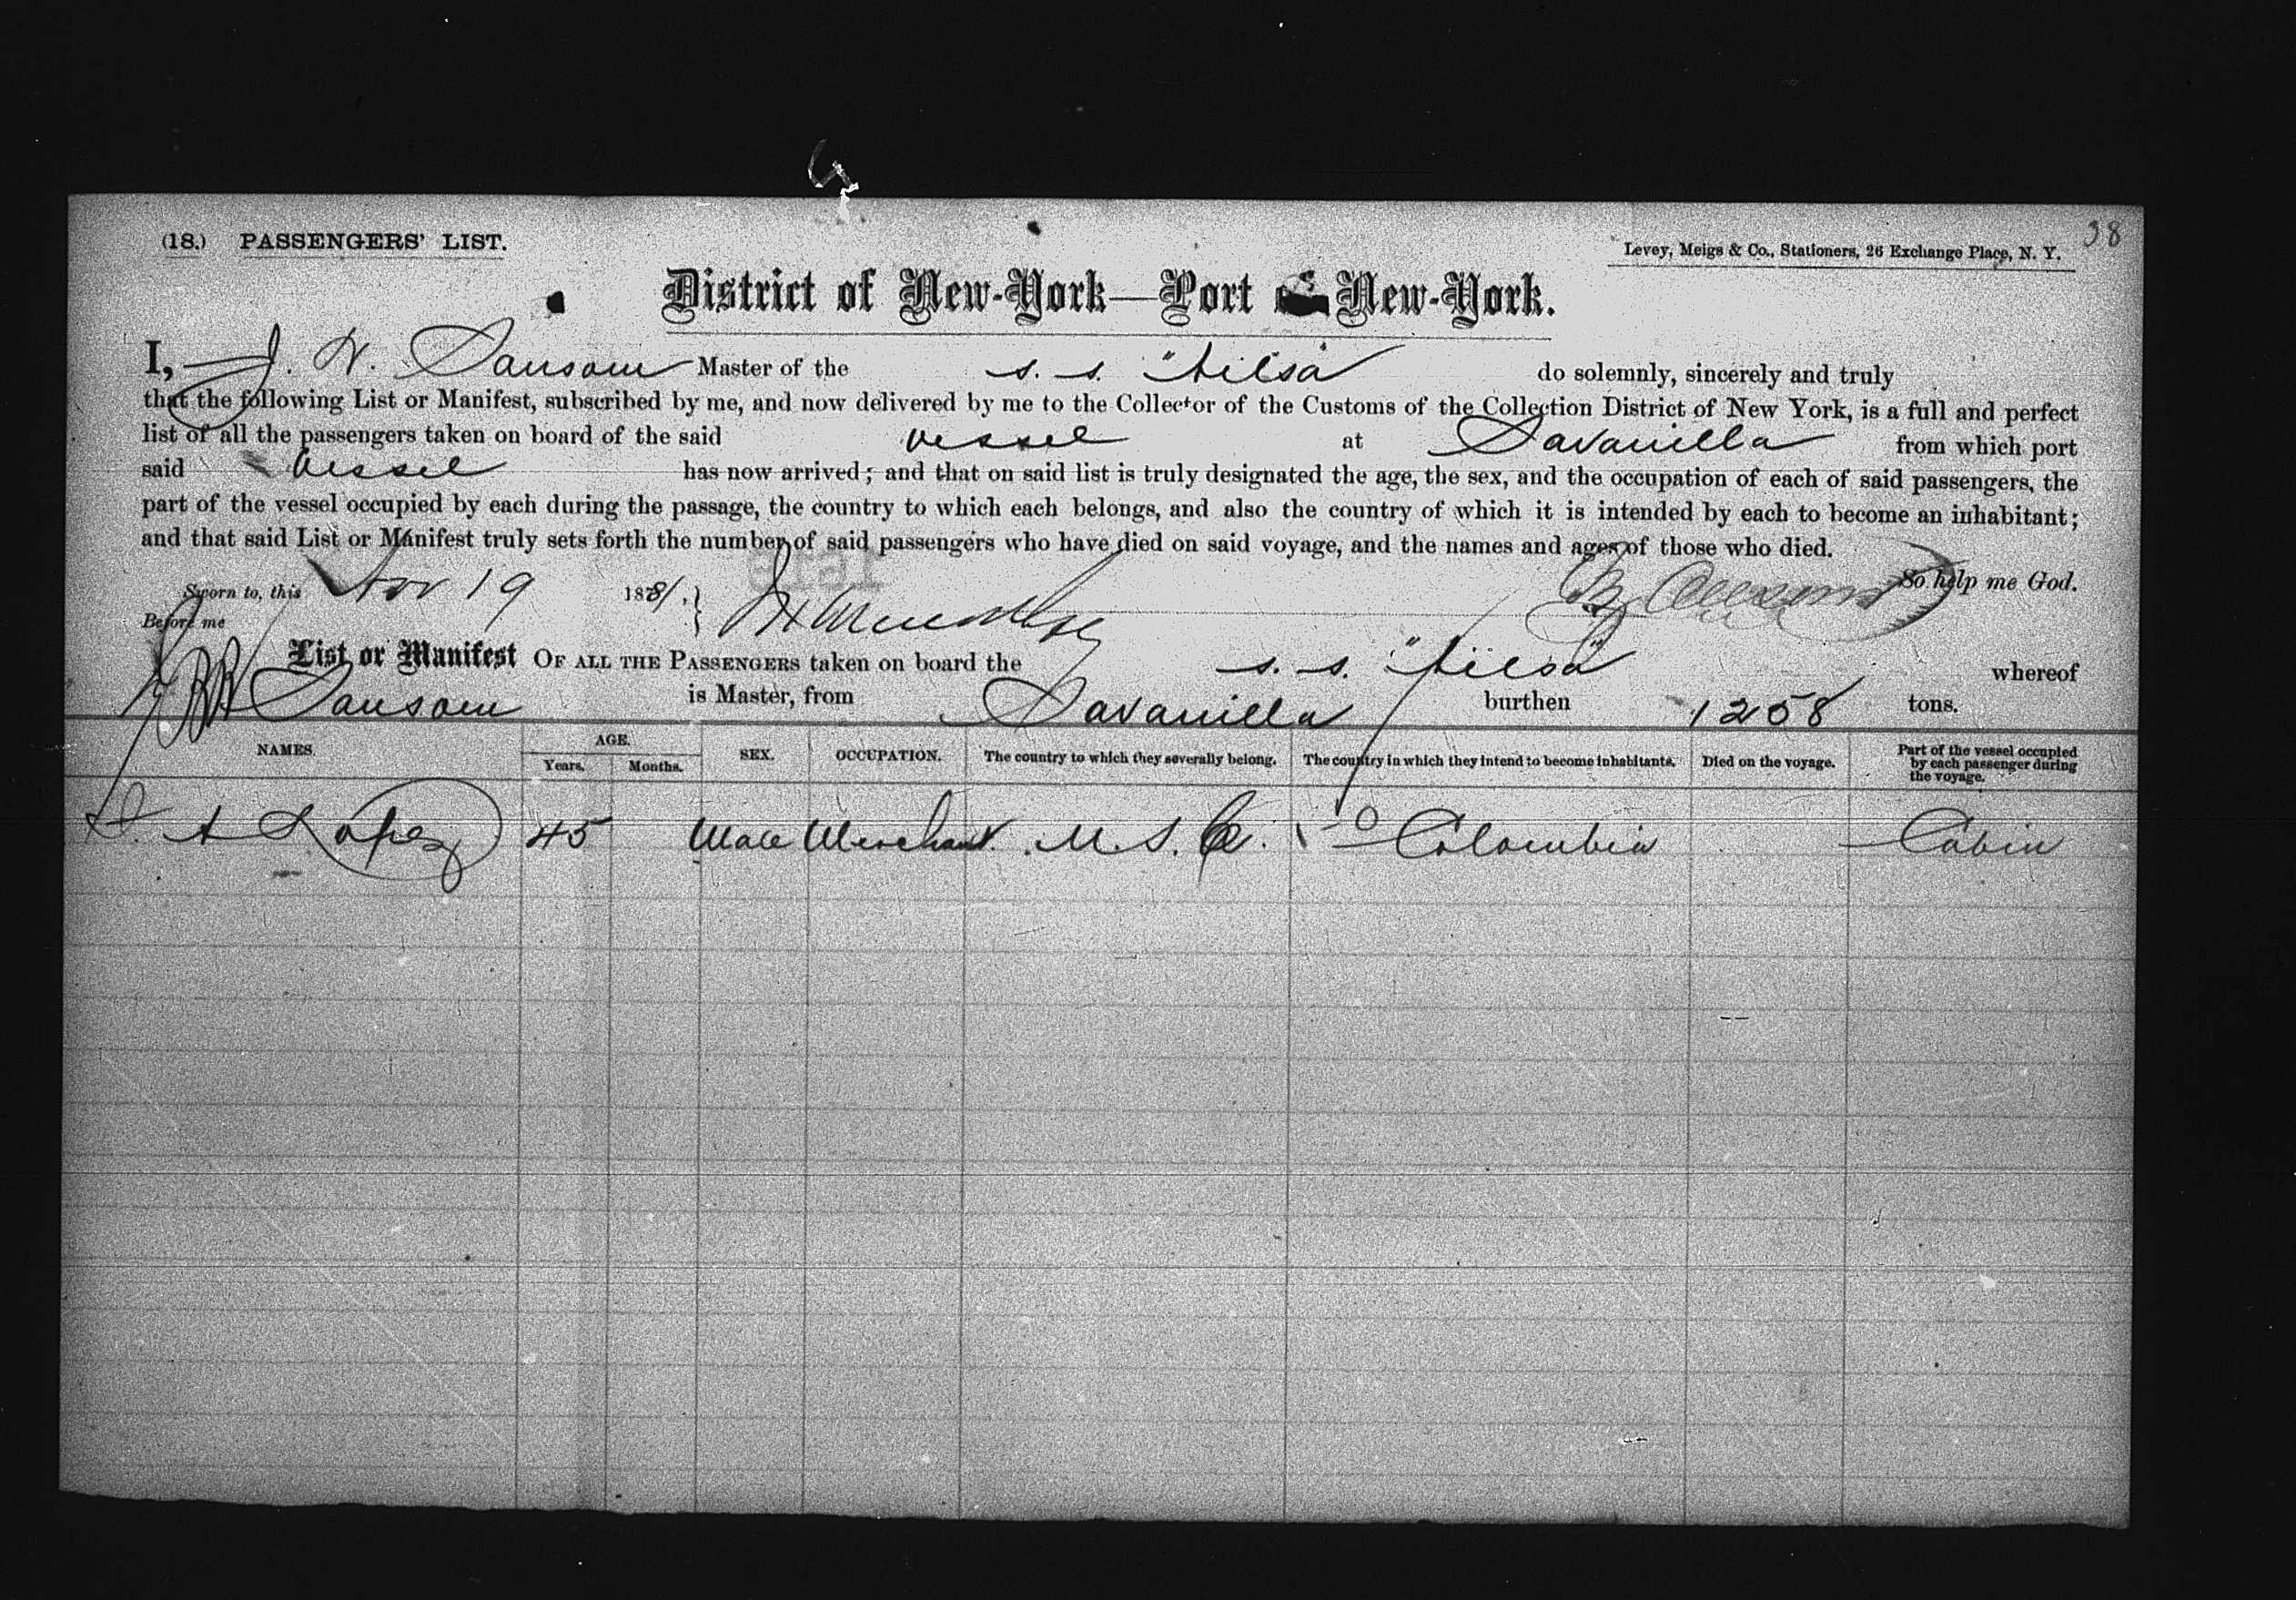 38
(18.) PASSENGERS' LIST.
Levey, Meigs & Co., Stationers, 26 Exchange Place, N. Y.
District of New-York—Port New-York.
I, J. W. Sansom Master of the s. s. "Ailsa" do solemnly, sincerely and truly
that the following List or Manifest, subscribed by me, and now delivered by me to the Collector of the Customs of the Collection District of New York, is a full and perfect
list of all the passengers taken on board of the said vessel at Savanilla from which port
said vessel has now arrived; and that on said list is truly designated the age, the sex, and the occupation of each of said passengers, the
part of the vessel occupied by each during the passage, the country to which each belongs, and also the country of which it is intended by each to become an inhabitant;
and that said List or Manifest truly sets forth the number of said passengers who have died on said voyage, and the names and ages of those who died.
Sworn to, this Nov 19 1881. So help me God.
Before me
List or Manifest OF ALL THE PASSENGERS taken on board the s. s. "Ailsa" whereof
Sansom is Master, from Savanilla burthen 1258 tons.
NAMES. AGE. Years. Months. SEX. OCCUPATION. The country to which they severally belong. The country in which they intend to become inhabitants. Died on the voyage. Part of the vessel occupied by each passenger during the voyage.
A Lopez 45 Male Merchant Colombia Cabin